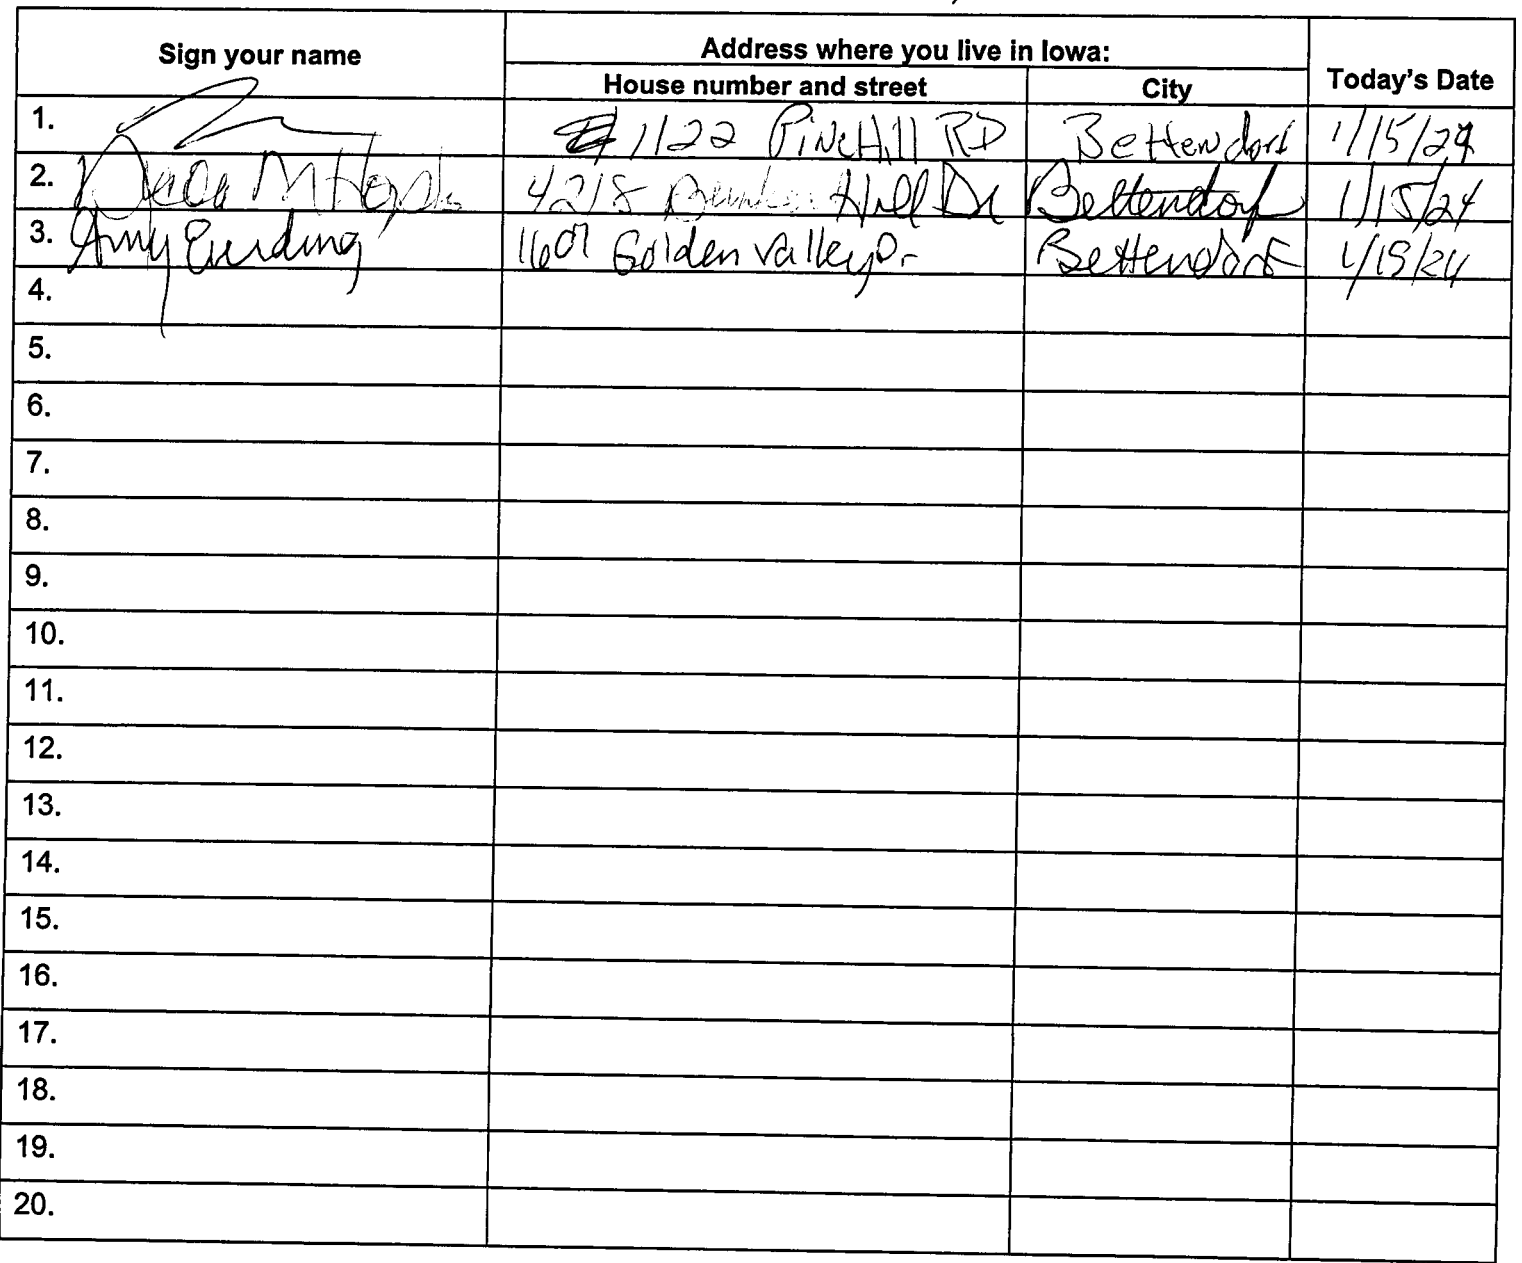 Sign your name
Address where you live in Iowa:
House number and street
City
Today's Date
1. 1122 PineHill RD Bettendorf 1/15/24
2. 4218 Bunker Hill Dr Bettendorf 1/15/24
3. Amy 1607 Golden Valley Dr Bettendorf 1/15/24
4.
5.
6.
7.
8.
9.
10.
11.
12.
13.
14.
15.
16.
17.
18.
19.
20.